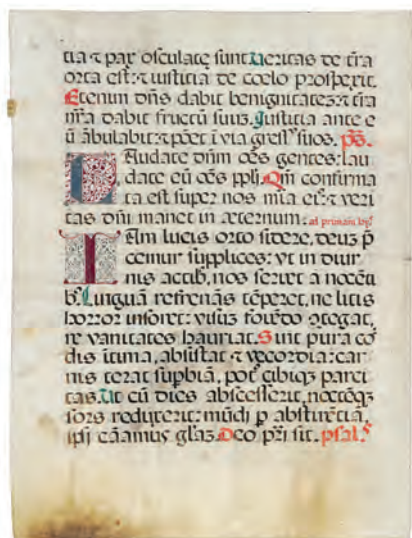 tia ⁊ pax osculatę sunt Veritas de t̄ra
orta est:⁊ iustitia de coelo prospexit.
Etenim dn̄s dabit benignitatez:⁊ t̄ra
nr̄a dabit fructū suuz. Justitia ante e
ū ābulabit:⁊ pōet ī via gress⁹ suos. ps̄.
Laudate dn̄m oēs gentes: lau
date eū oēs pp̄li. Qm̄ confirma
ta est super nos mīa ei⁹:⁊ veri
tas dn̄i manet in æternum. ad primam hy⁹
IAm lucis orto sidere, deuz p̄
cemur supplices: vt in diur
nis actib, nos seruet a nocēti
b⁹. Linguā refrenās tēperet, ne litis
horror insonet: visuz fouēdo ɔtegat,
ne vanitates hauriat. Sint pura co
dis ītima, absistat ⁊ vecordia: car
nis terat supbiā, pot⁹ cibiqz parci
tas. Ut cū dies abscesserit, noctēqz
sors reduxerit: mūdi p abstinētia,
ipsi canamus gl̄az. Deo pr̄i sit. psal.⁹